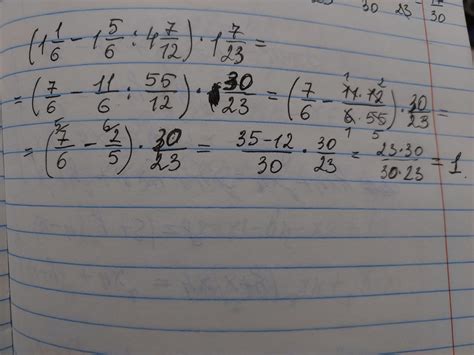 30 23 30
(1 1/6 - 1 5/6 : 4 7/12) · 1 7/23 =
= (7/6 - 11/6 : 55/12) · 30/23 = (7/6 - 11·12/6·55) · 30/23 =
= (7/6 - 2/5) · 30/23 = 35-12/30 · 30/23 = 23·30/30·23 = 1.